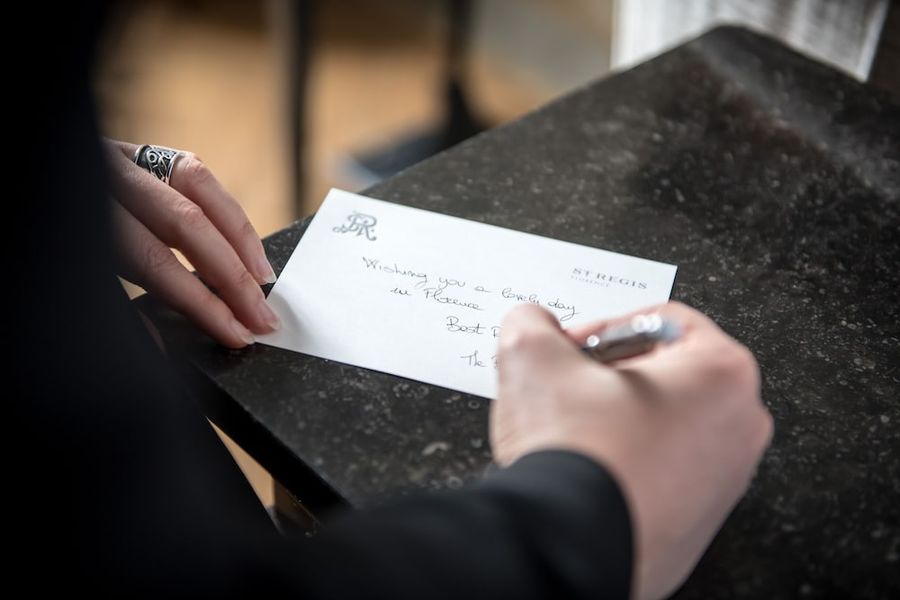 SR
ST REGIS
FLORENCE
Wishing you a lovely day
in Florence
Best
The